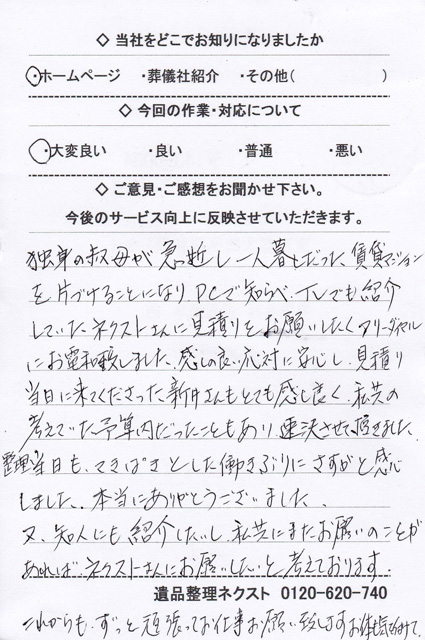 ◇ 当社をどこでお知りになりましたか
・ホームページ ・葬儀社紹介 ・その他( )
◇ 今回の作業・対応について
・大変良い ・良い ・普通 ・悪い
◇ ご意見・ご感想をお聞かせ下さい。
今後のサービス向上に反映させていただきます。
独身の叔母が急逝し一人暮しだった、賃貸マンション
を片づけることになり、PCで知らべ、TVでも紹介
していたネクストさんに見積りをお願いしたくフリーダイヤル
にお電話致しました、感じの良い応対に安心し、見積り
当日に来てくださった新井さんもとても感じ良く、私共の
考えていた予算内だったこともあり、速決させて頂きました、
整理当日も、てきぱきとした働きぶりにさすがと感心
しました、本当にありがとうございました、
又、知人にも紹介したいし、私共にまたお願いのことが
あれば、ネクストさんにお願いしたいと考えております。
遺品整理ネクスト 0120-620-740
これからも、ずっと頑張ってお仕事お願い致します